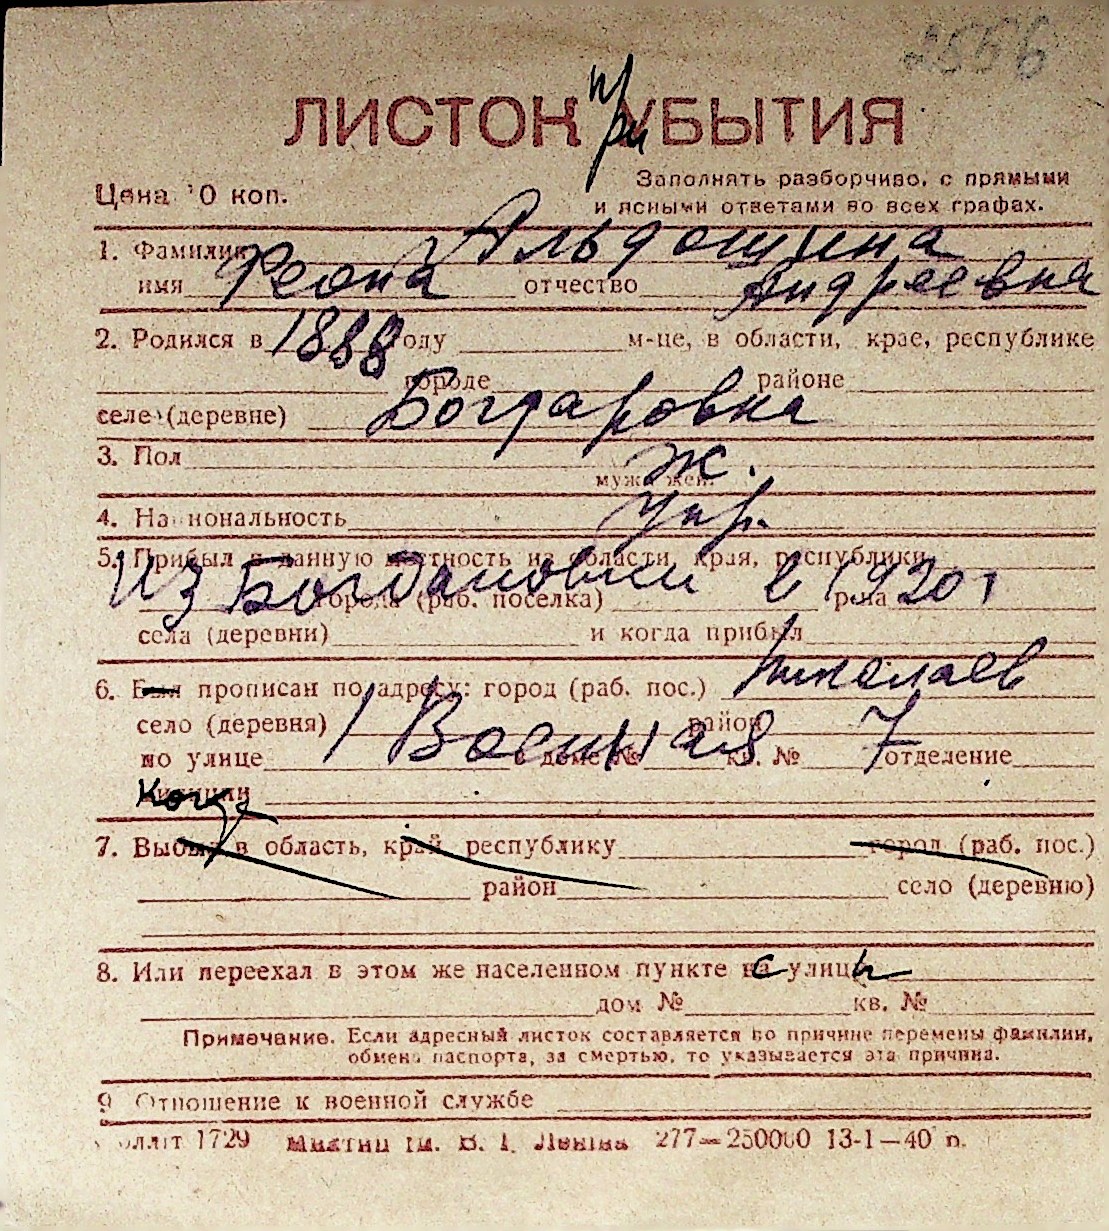 2556
ЛИСТОК при УБЫТИЯ
Цена 10 коп.
Заполнять разборчиво, с прямыми
и ясными ответами во всех графах.
1. Фамилия Альдошина
имя Феона отчество Андреевна
2. Родился в 1888 году м-це, в области, крае, республике
городе районе
селе (деревне) Богдаровка
3. Пол ж.
муж. жен.
4. Национальность укр.
5. Прибыл в данную местность из области, края, республики
Из Богдановки в 1920 г
города (раб. поселка) р-на
села (деревни) и когда прибыл
6. Был прописан по адресу: город (раб. пос.) Николаев
село (деревня) район
по улице 1 Военная в доме № кв. № 7 отделение
милиции
7. Выбыл в область, край, республику город (раб. пос.)
район село (деревню)
8. Или переехал в этом же населенном пункте с улицы
дом № кв. №
Примечание. Если адресный листок составляется по причине перемены фамилии,
обмена паспорта, за смертью, то указывается эта причина.
9. Отношение к военной службе
1729 ім. В. І. Леніна 277—250000 13-1—40 п.